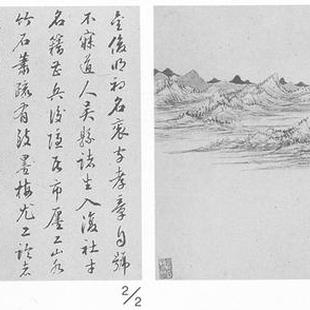 金俊明初名袞字孝章自號
不寐道人吳縣諸生入復社才
名籍甚兵後隱居市廛工山水
竹石蕭疏有致墨梅尤工論者
2/2